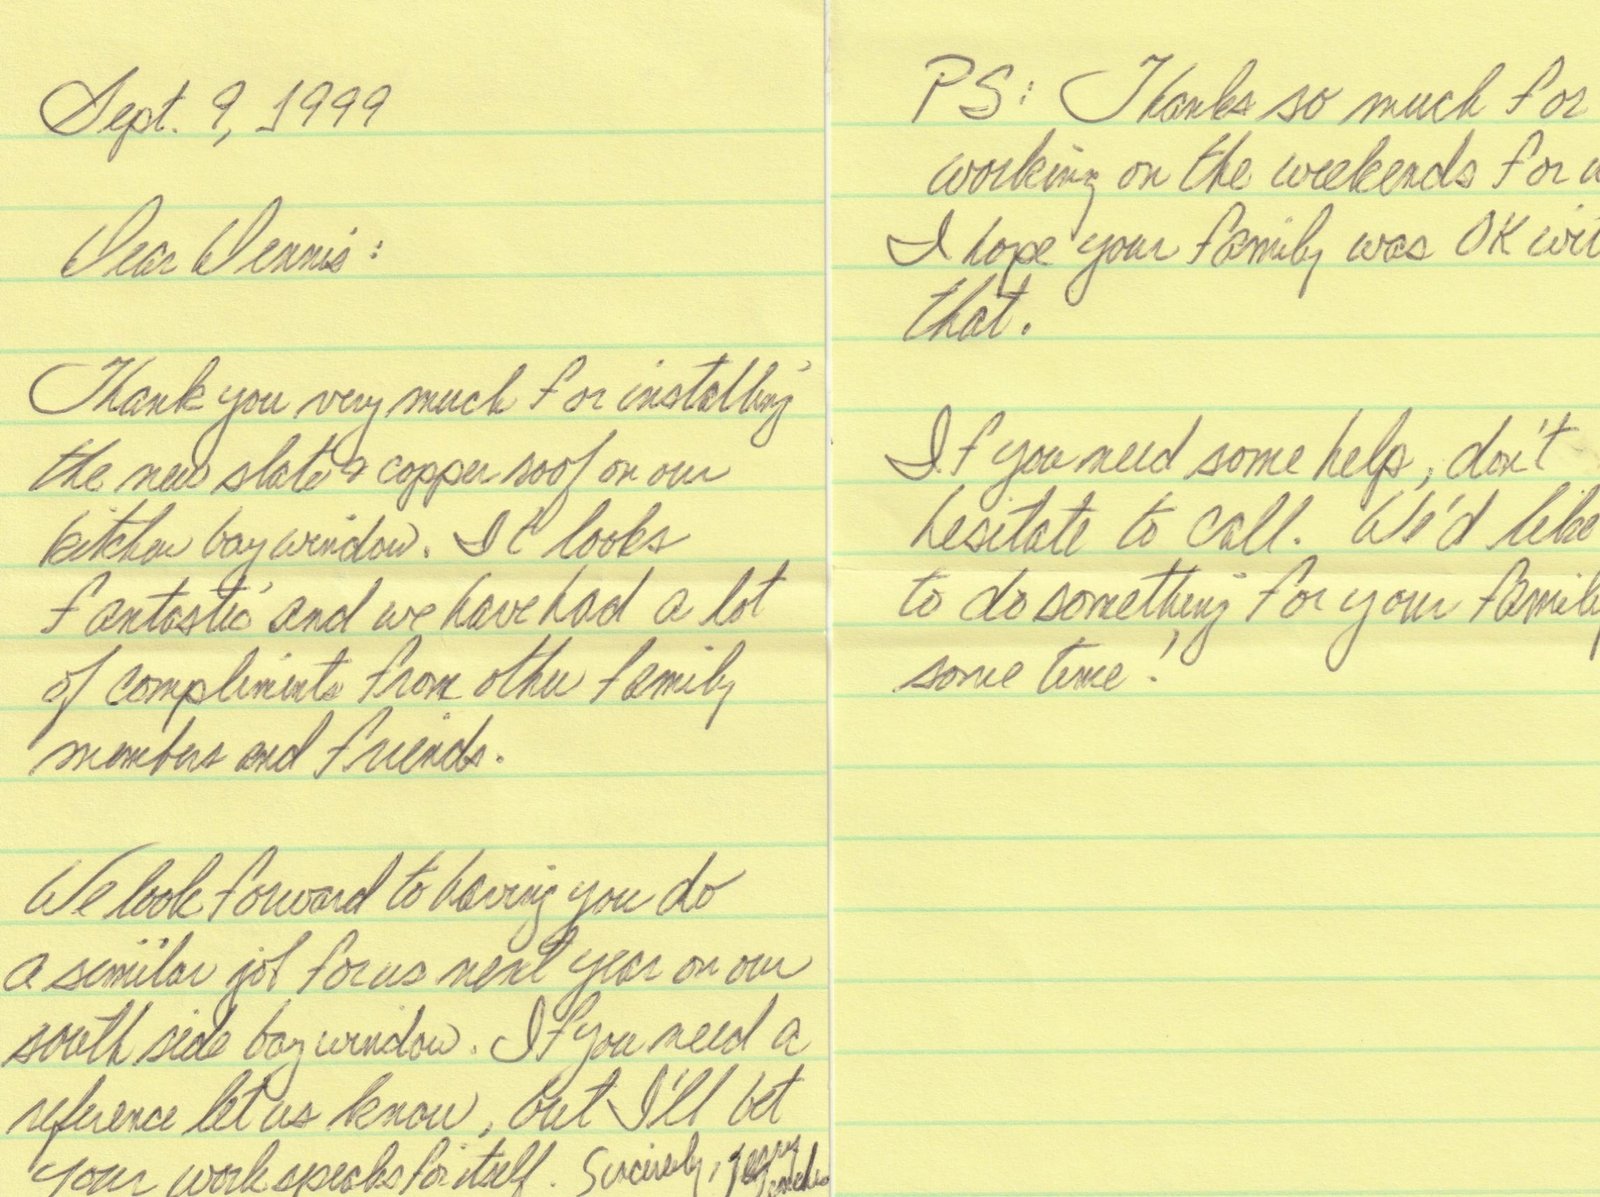 Sept. 9, 1999
Dear Dennis:
Thank you very much for installing
the new slate & copper roof on our
kitchen bay window. It looks
fantastic and we have had a lot
of compliments from other family
members and friends.
We look forward to having you do
a similar job for us next year on our
south side bay window. If you need a
reference let us know, but I'll bet
your work speaks for itself. Sincerely,
PS: Thanks so much for
working on the weekends for
I hope your family was OK wit
that.
If you need some help, don't
hesitate to call. We'd like
to do something for your family
some time!